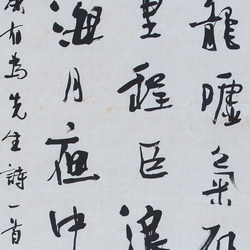 龍噓氣破
里程巨浪
海月夜中
康有為先生詩一首